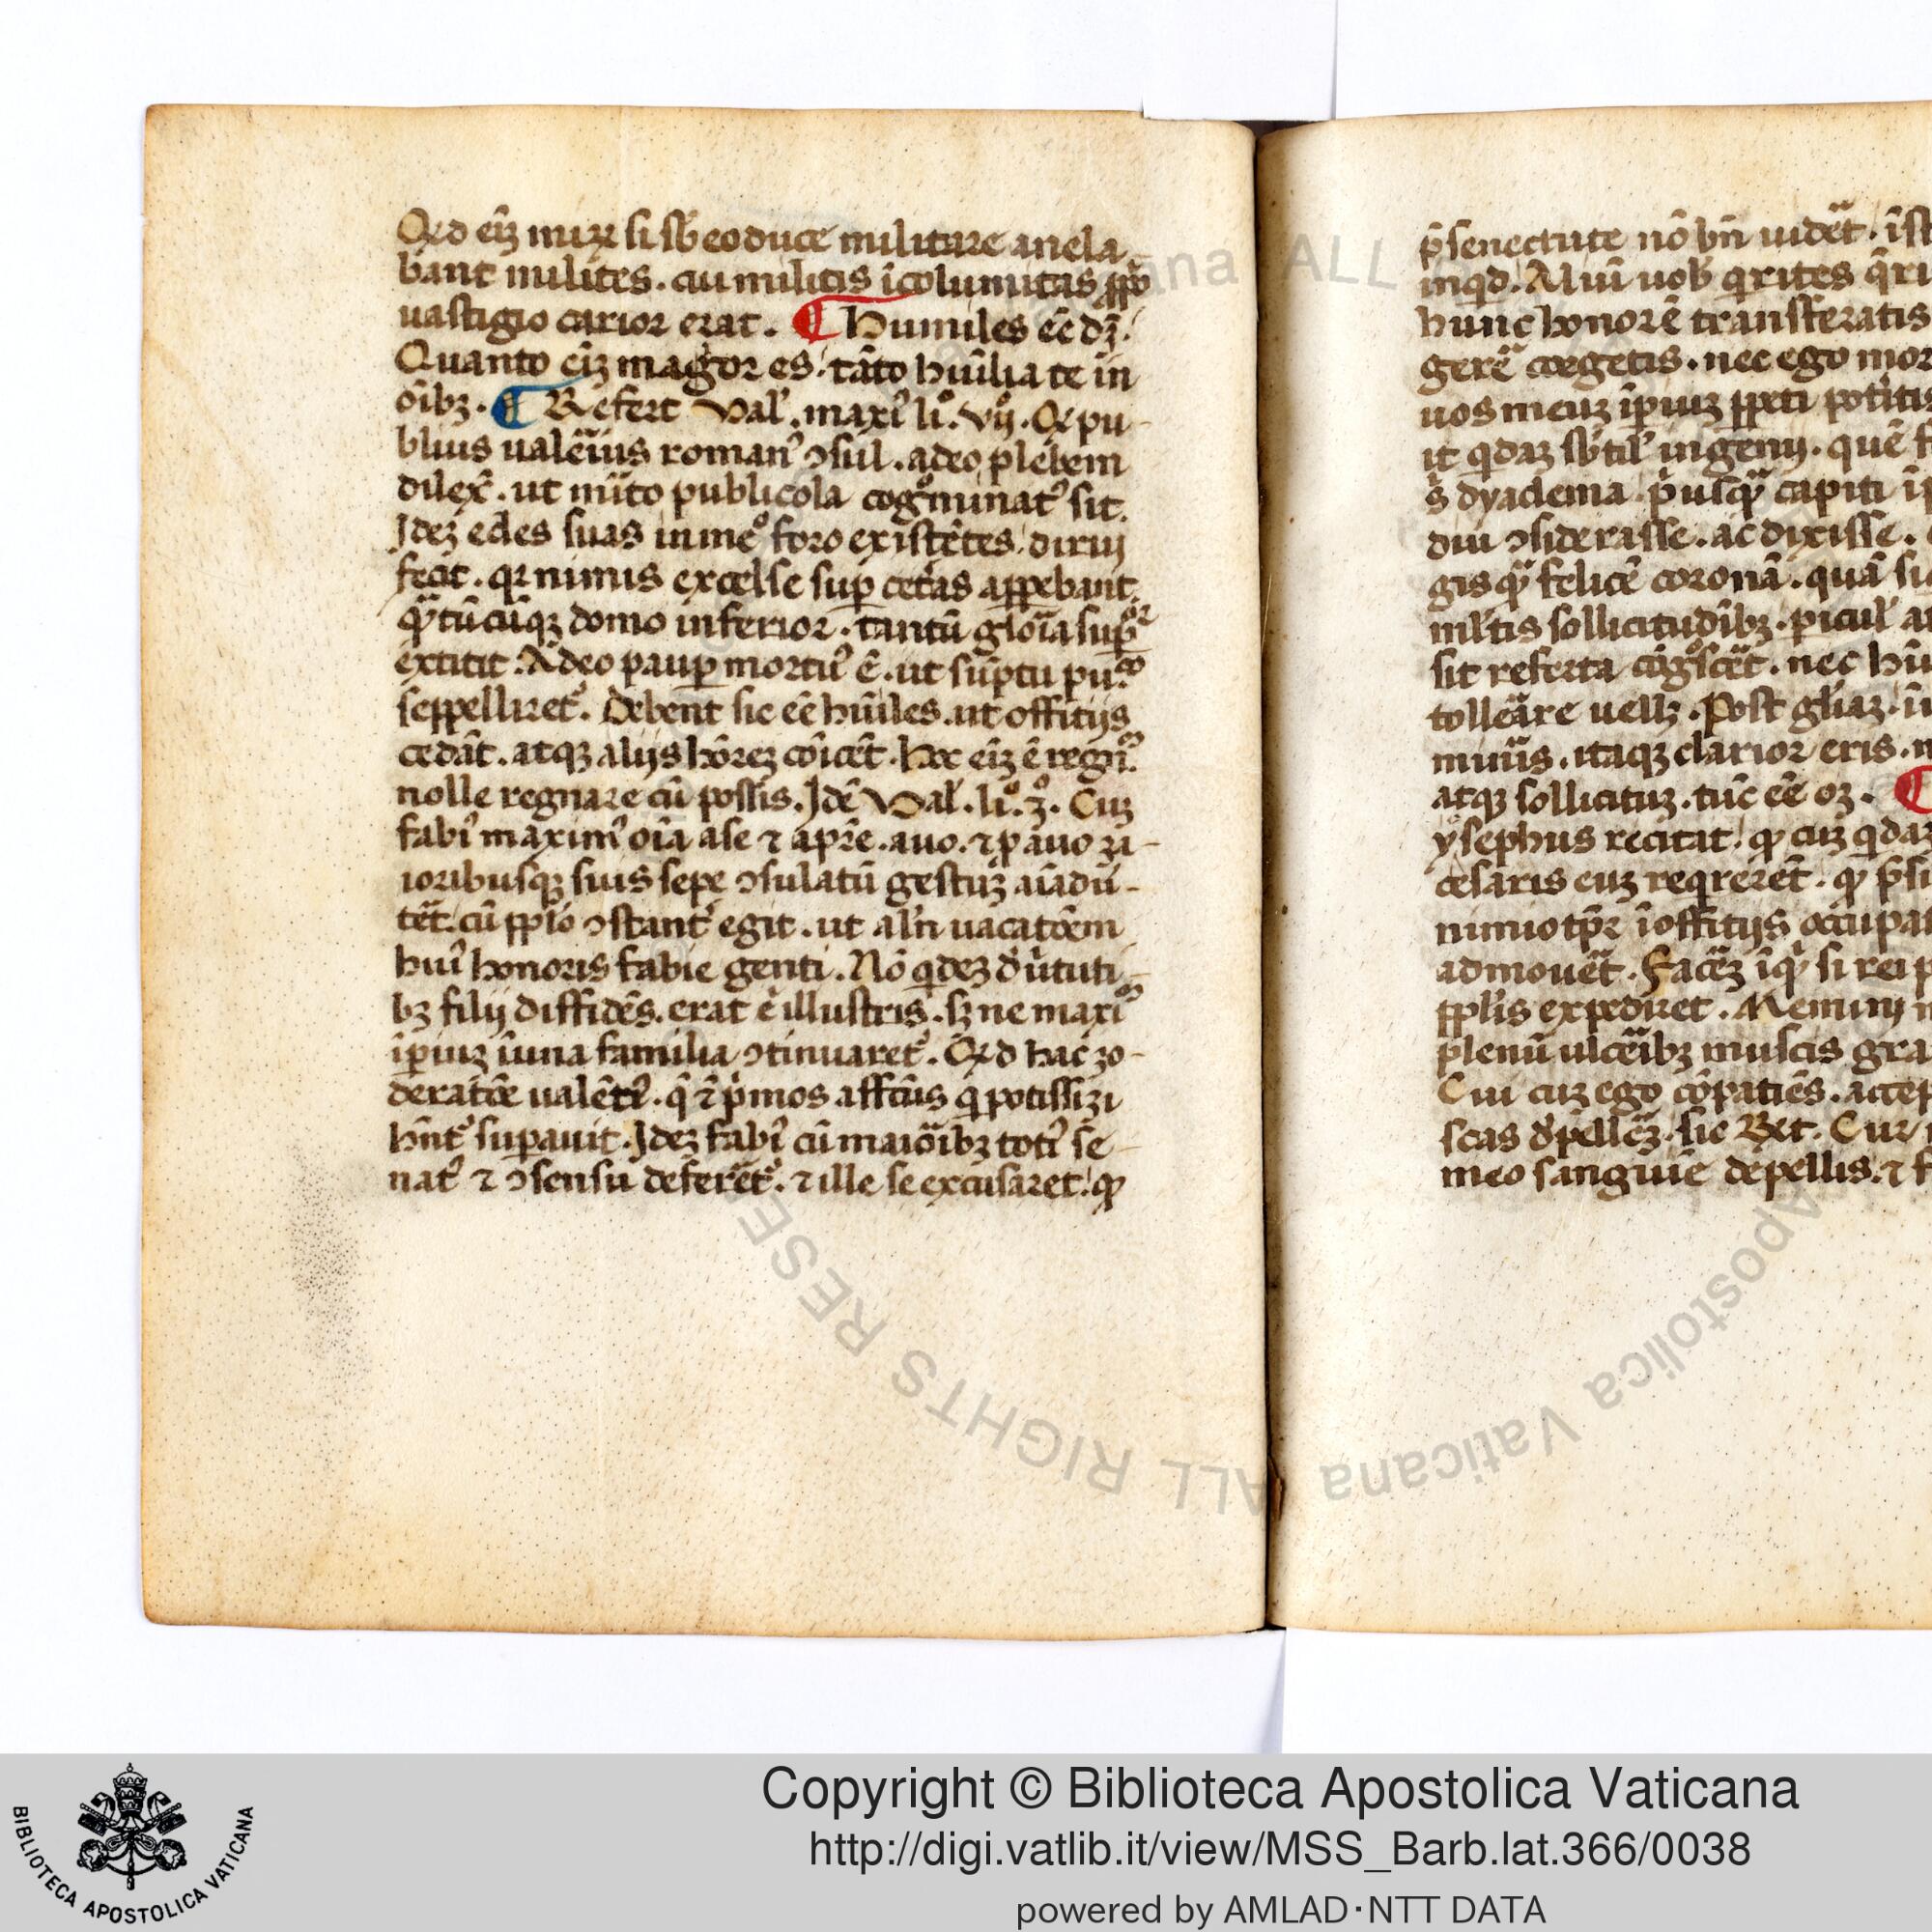 Qd̛ eīȝ miꝝ si sb̄ eo duce militare anela
bant milites. cui militis īcolumitas ꝓpͦ
uastigio carior erat. ¶ Humiles ēē dȝ.
Quanto eīȝ magͦor es. tāto hūilia te in
oībȝ. ¶ Refert Val̓. maxī liͦ. vij. Q pu-
blius ualeͣius romanꝰ ɔsul. adeo plebem
dilex̄. ut mͥito publicola cogͦminatꝰ sit.
Jdeȝ edes suas in meͦ foro existētes dirui
fecit. qꝛ nimis excelse suꝑ cet̓as aꝑpebant.
q̣ͣtūcūqȝ domo inferior. tantū gloͣia suꝑͦꝛ
extitit. Adeo pauꝑ mortuꝰ ē. ut sūptu puͨͦ
seppelliretꝰ. Debent sic ēē hūiles. ut offitijs
cedāt. atqȝ alijs hōreȝ cōicēt. Hoc eīȝ ē regͫī.
nolle regnare cū possis. Jdē Val̓. liͦ. ȝͦ. Cuȝ
fabꝰ maximꝰ oīa a se ⁊ a pr̄e. auo. ⁊ ꝓauo ȝa-
ioribusqȝ suis sepe ɔsulatū gestuȝ aīadu-
tēt. cū pplo ɔstantꝰ egit. ut aln̄ uacatōem
huiꝰ honoris fabie genti. Nō qdeȝ d̓ uͥtuti-
bȝ filij diffidēs. erat ē illustris. sȝ ne maxīͫ
īꝑiuȝ īuna familia ɔtinuaretꝰ. Qd hac ȝo-
deratōe ualētꝰ. q̄ ⁊ pͥmos affcūs q potissiȝi
hn̄tꝰ suꝑauit. Jdeȝ fabꝰ cū maioͣibȝ totiꝰ se-
natꝰ ⁊ ɔsensu deferētꝰ. ⁊ ille se excusaret. qͩ
p̄senectute nō bn̄ uidēt. īst
inqd. Aliuī uob̓ qrites q̄ri
hunc honorē transferatis
gereͣ cogetis. nec ego mor
uos meuȝ īꝑiuȝ ꝑpeti potͥtis
it qdaȝ sb̄til̓ ingenij. quē f
s̓ dyadema. pͥusqͣ capiti ī
diu ɔsiderasse. ac dixisse.
gis qͣ felicē coronā. quā si
ml̓tis sollicitudībȝ. ꝑicul̓ a
sit referta cōgͦsceͣt. nec hu
tolleͣare uellȝ. Post gl̓iaȝ. ū
muͣis. itaqȝ clarior eris.
atqȝ sollicituȝ. tūc ēē oȝ. ¶
ysephus recitat. qͩ cuȝ qdaȝ
cesaris euȝ reqrerēt. qͩ p̄si
nimio tꝑe ī offitijs occupat
admoueͣt. Faceͣȝ īqͥ si rei p
pplis expediret. Memini
plenū ulceͣibȝ muscis gra
Cui cuȝ ego cōpatiēs. accep
scas d̓pelleͣȝ. sic Rx̄t. Cur
meo sanguīe depellis. ⁊ f
Copyright © Biblioteca Apostolica Vaticana
http://digi.vatlib.it/view/MSS_Barb.lat.366/0038
powered by AMLAD·NTT DATA
BIBLIOTECA APOSTOLICA VATICANA